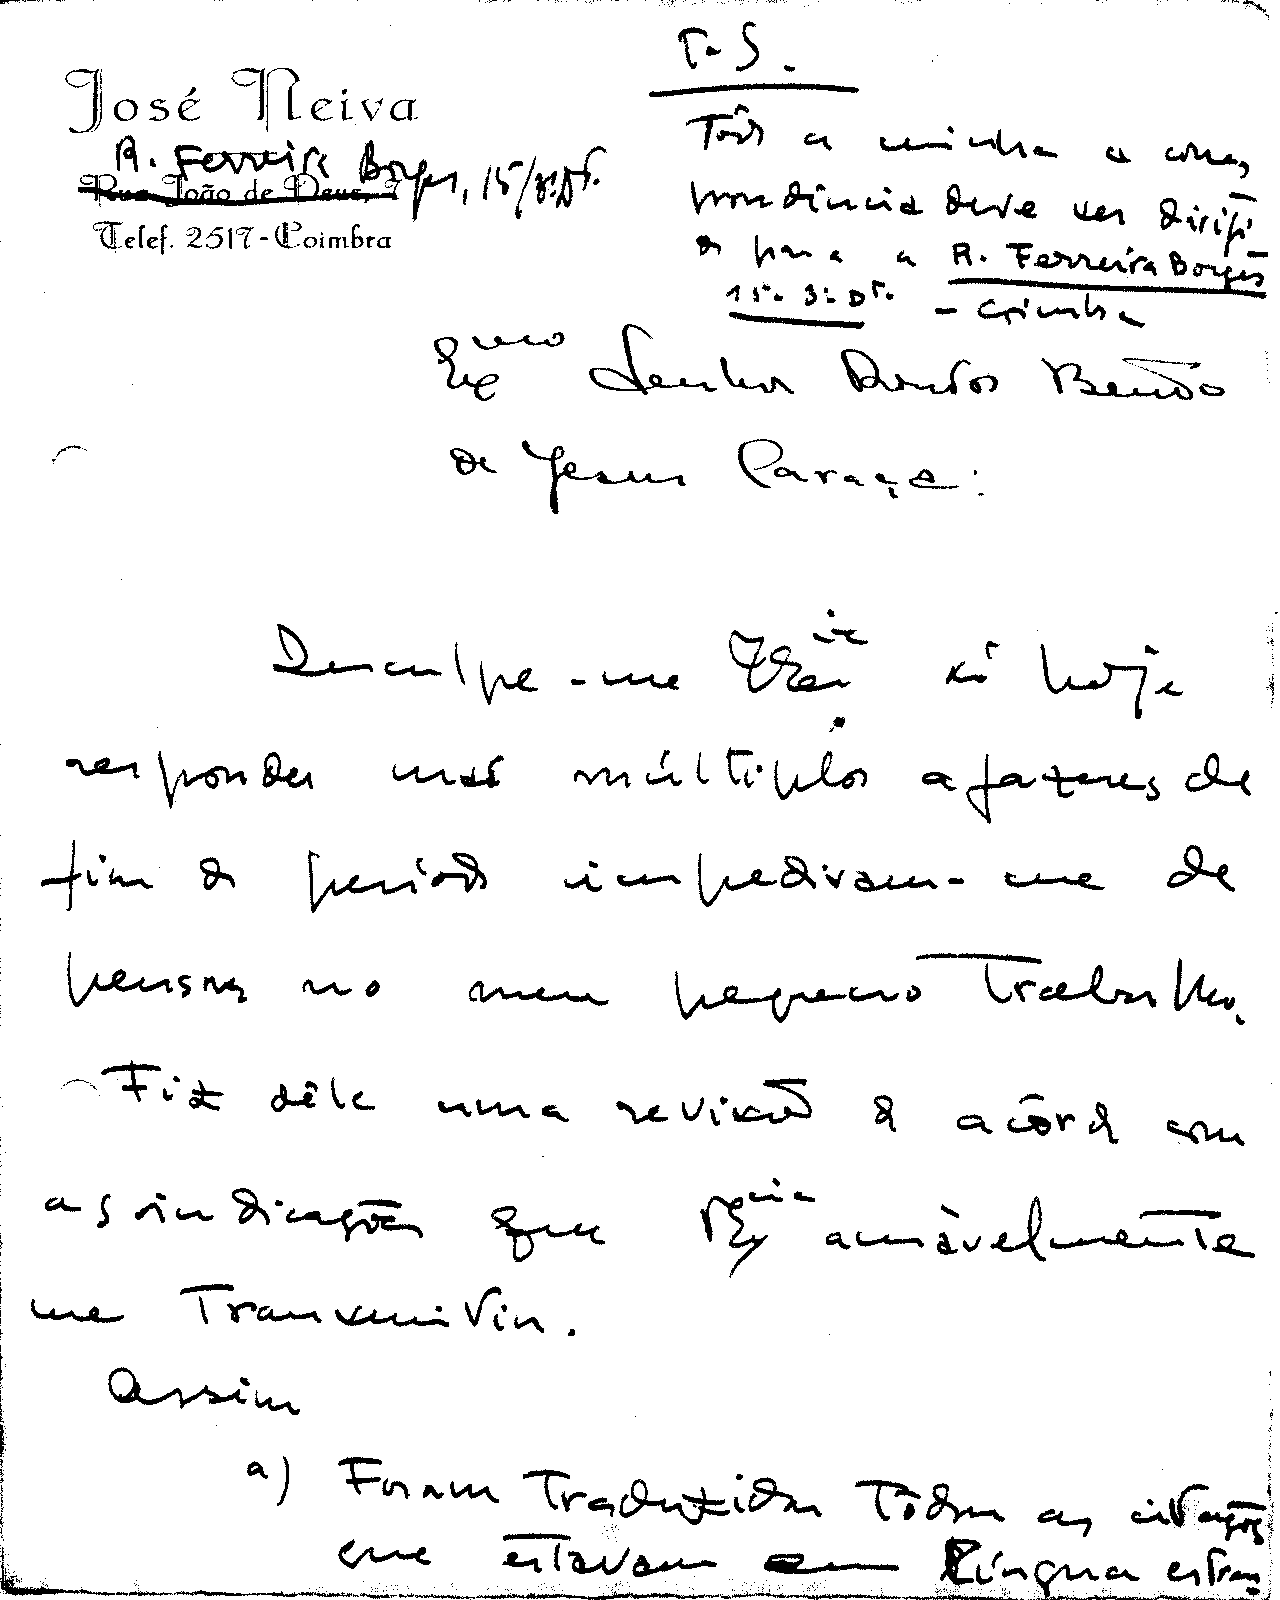 José Neiva
R. Ferreira Borges, 15/3º Dt.
Rua João de Deus, 7
Telef. 2517 - Coimbra
P. S.
Tôda a minha a corres
pondência deve ser dirigi
da para a R. Ferreira Borges
15 - 3º Dt. - Coimbra
Exmo Senhor Doutor Bento
de Jesus Caraça:
Desculpe-me V. Excia só hoje
responder mas múltiplos afazeres de
fim de período impediram-me de
pensar no meu pequeno trabalho.
Fiz dêle uma revisão de acôrdo com
as indicações que V. Excia amàvelmente
me transmitiu.
Assim
a) Foram traduzidas tôdas as citações
que estavam em língua estran